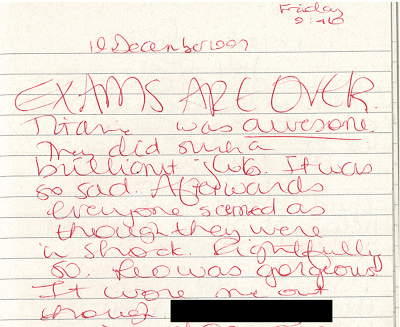 Friday
9:40
19 December 1997
EXAMS ARE OVER.
Titanic was awesome.
They did such a
brilliant job. It was
so sad. Afterwards
everyone seemed as
though they were
in shock. Rightfully
so. Leo was gorgeous
It wore me out
though.